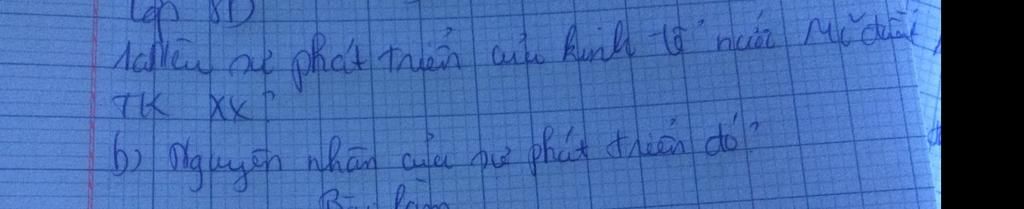 Lớp 8D
1a) Nêu sự phát triển của kinh tế nước Mĩ đầu
TK XX?
b) Nguyên nhân của sự phát triển đó?
Bài làm